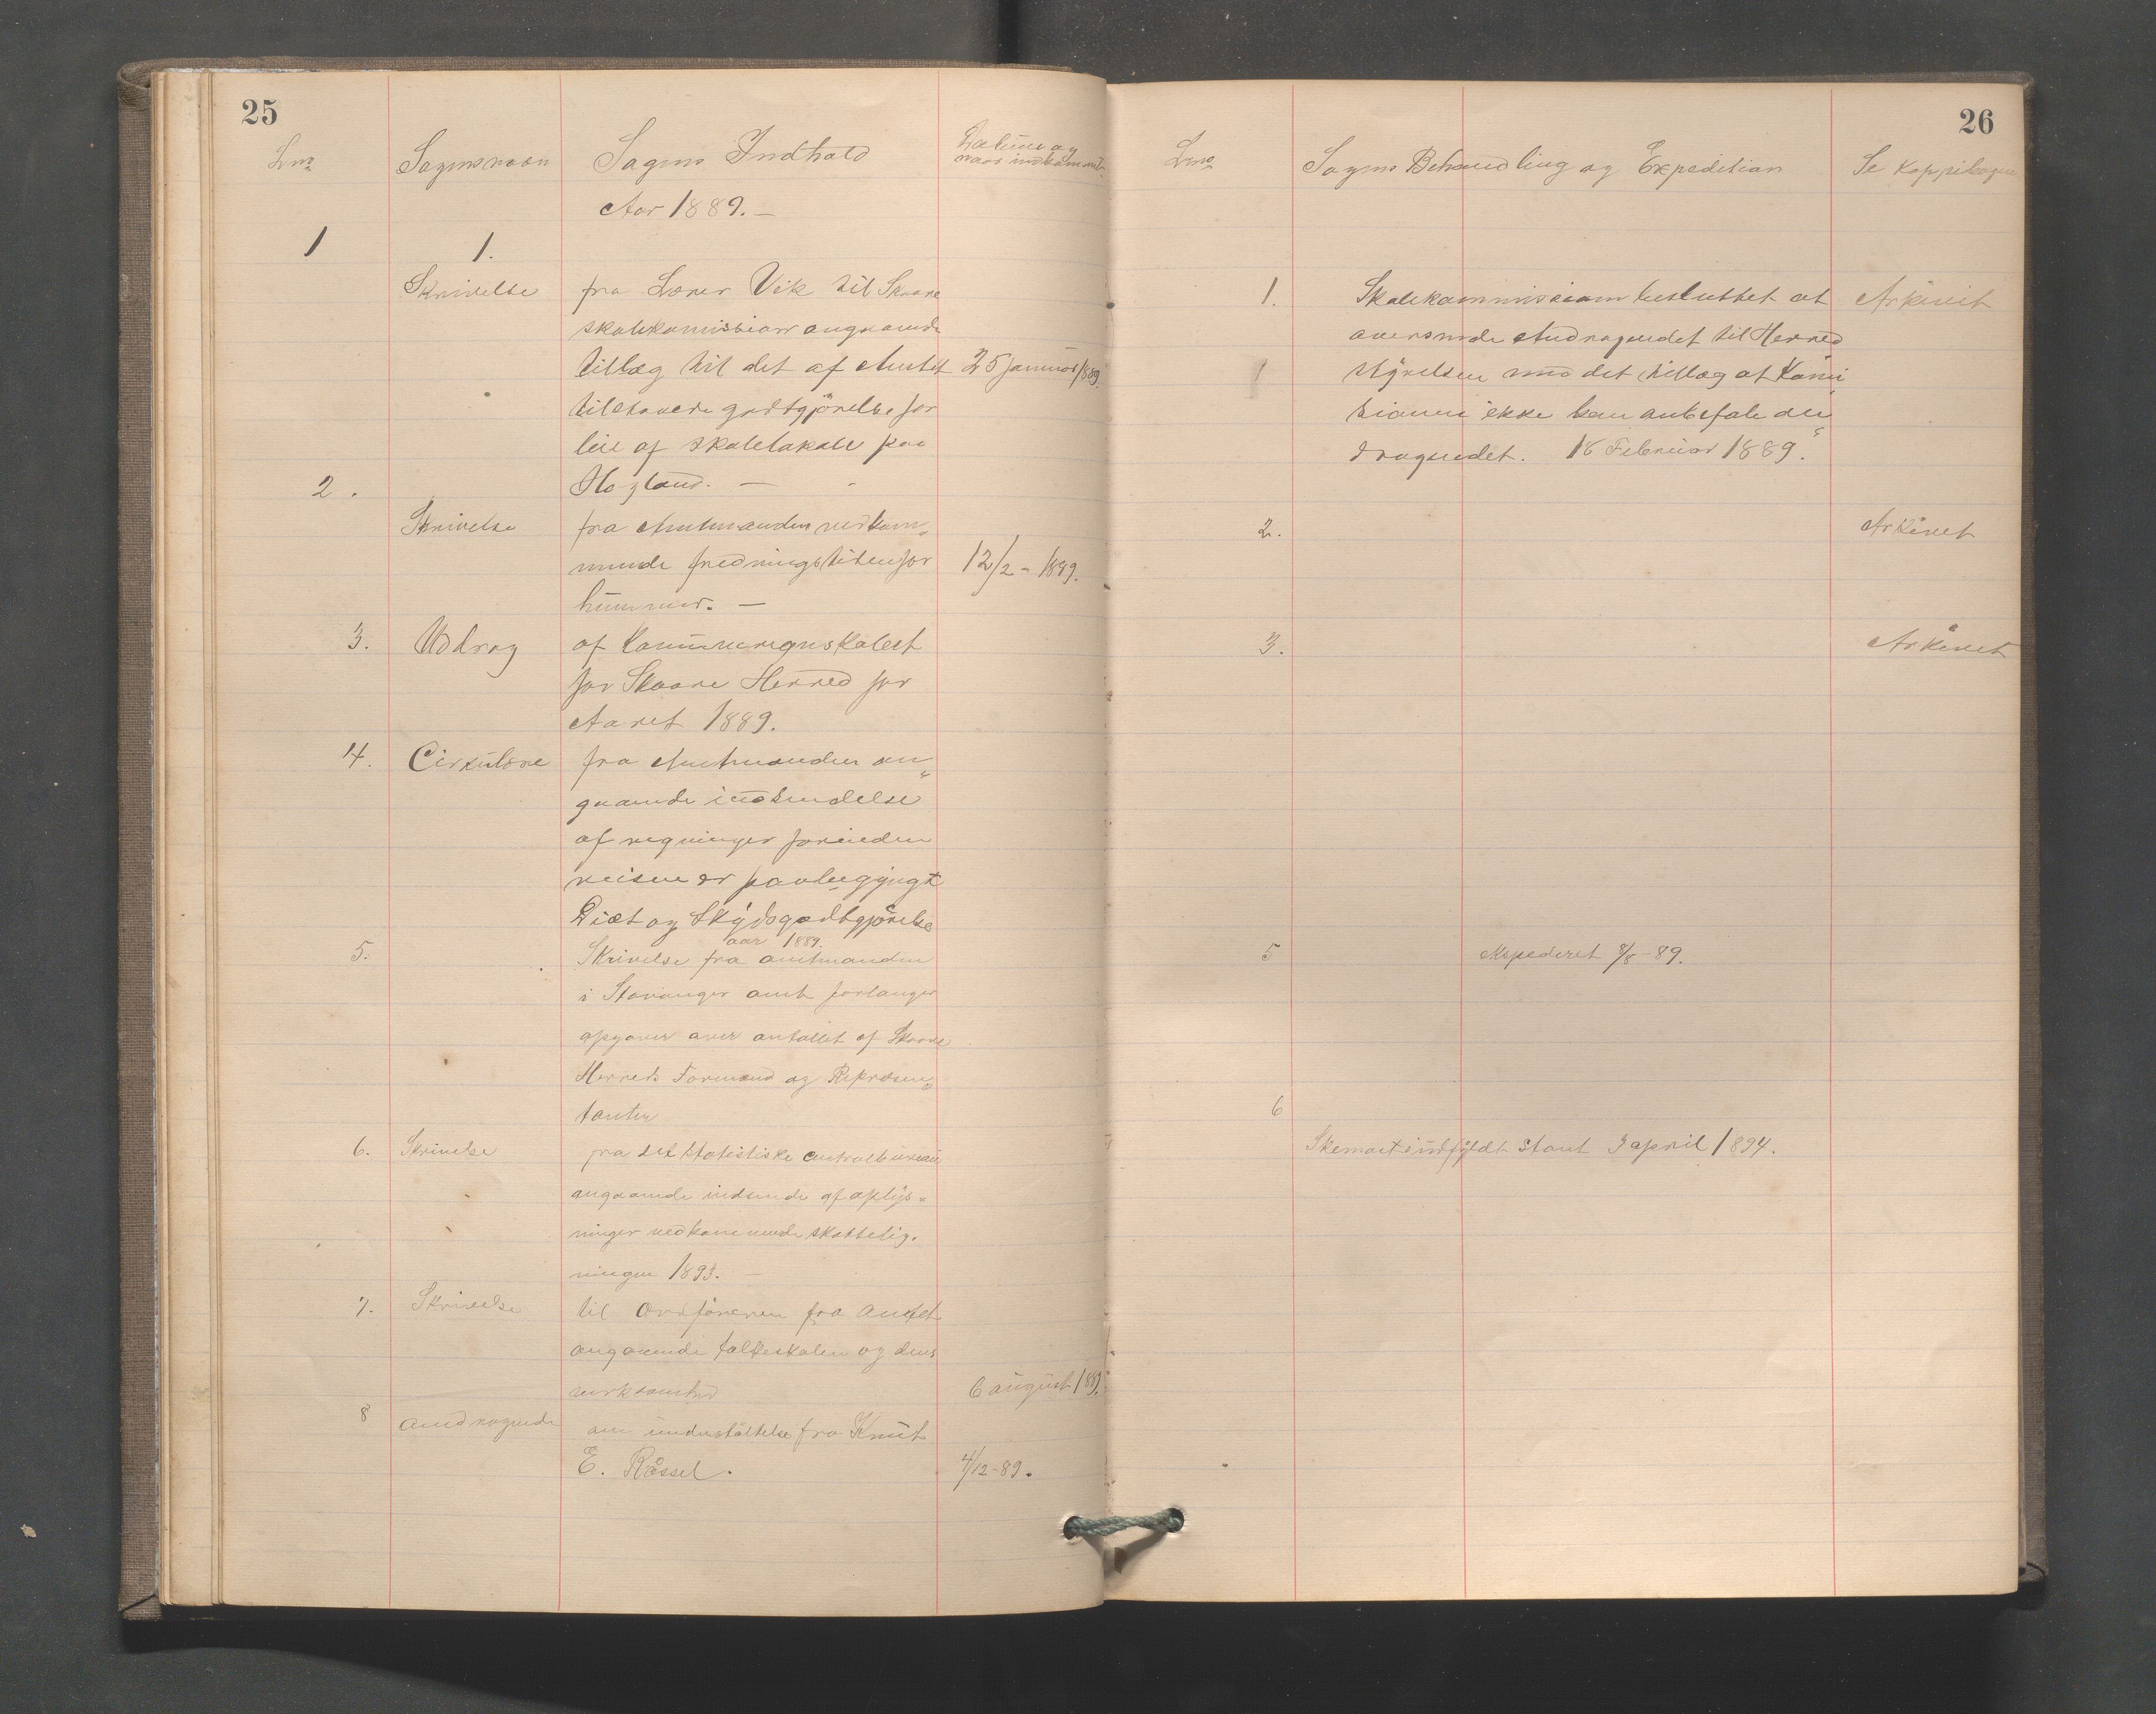 25
Lno
Sagens navn
Sagens Indhold
Datum og
naar indkommet
Aar 1889. —
1
1.
Skrivelse
fra Lærer Vik til Skaare
skolekomission angaaende
tillæg til det af Amtet
25 Januar 1889.
tilstaaede godtgjörelse for
leie af skolelokale paa
Hogland. —
2.
Skrivelse
fra Amtmanden vedkom-
mende fredningstiden for
12/2 - 1889.
hummer. —
3.
Uddrag
af Kommuneregnskabet
for Skaare Herred for
Aaret 1889.
4.
Cirkulære
fra Amtmanden an"
gaaende indsendelse
af regninger forinden
reisen er paabegyngt
Diæt og Skydsgodtgjörelse
aar 1889.
5.
Skrivelse fra amtmanden
i Stavanger amt forlanger
opgaver over antallet af Skaare
Herreds Formænd og Repræsen-
tanter
6.
Skrivelse
fra det statistiske centralbureau
angaaende indsende af oplys-
ninger vedkommende skattelig-
ningen 1893. —
7.
Skrivelse
til Ordföreren fra Amtet
angaaende folkeskolen og dens
virksomhed
6 august 1889.
8
Andragende
om understöttelse fra Knut
E. Røssel.
4/12-89.
26
Lno
Sagens Behandling og Expedition
Se Koppibogen
1.
Skolekommissionen besluttet at
Arkivet
oversende Andragendet til Herred
styrelsen med det tillæg at Komi
sionen ikke kan anbefale an"
dragendet. 18 Februar 1889.
2.
Arkivet
3.
Arkivet
5
ekspederet 9/8-89.
6
Skemaet indfyldt sendt 3 april 1894.